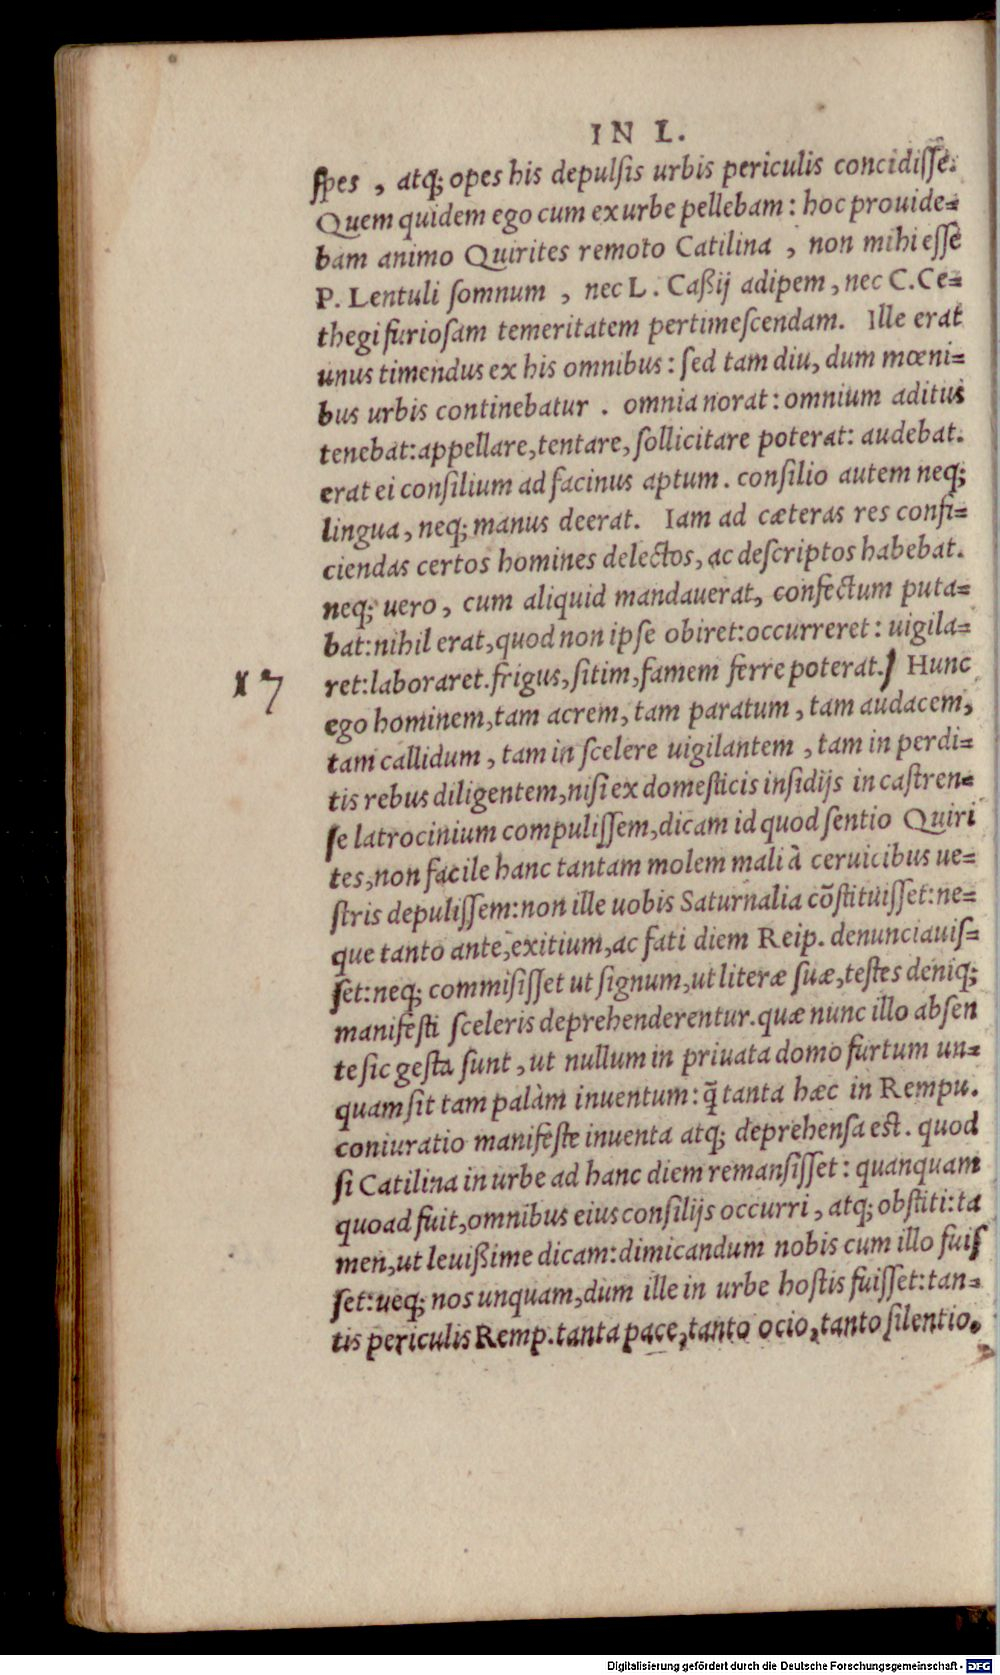 IN L.
ſpes , atq; opes his depulſis urbis periculis concidiſſe.
Quem quidem ego cum ex urbe pellebam : hoc prouide=
bam animo Quirites remoto Catilina , non mihi eſſe
P. Lentuli ſomnum , nec L. Caßij adipem, nec C. Ce=
thegi furioſam temeritatem pertimeſcendam. Ille erat
unus timendus ex his omnibus : ſed tam diu, dum mœni=
bus urbis continebatur . omnia norat : omnium aditus
tenebat: appellare, tentare, ſollicitare poterat: audebat.
erat ei conſilium ad facinus aptum . conſilio autem neq;
lingua, neq; manus deerat. Iam ad cæteras res confi=
ciendas certos homines delectos, ac deſcriptos habebat.
neq; uero, cum aliquid mandauerat, confectum puta=
bat: nihil erat, quod non ipſe obiret: occurreret : uigila=
17 ret: laboraret. frigus, ſitim, famem ferre poterat.] Hunc
ego hominem, tam acrem, tam paratum, tam audacem,
tam callidum, tam in ſcelere uigilantem, tam in perdi=
tis rebus diligentem, niſi ex domeſticis inſidijs in caſtren=
ſe latrocinium compuliſſem, dicam id quod ſentio Quiri
tes, non facile hanc tantam molem mali à ceruicibus ue=
ſtris depuliſſem: non ille uobis Saturnalia cōſtituiſſet: ne=
que tanto ante, exitium, ac fati diem Reip. denunciauiſ=
ſet: neq; commiſiſſet ut ſignum, ut literæ ſuæ, teſtes deniq;
manifeſti ſceleris deprehenderentur. quæ nunc illo abſen
te ſic geſta ſunt, ut nullum in priuata domo furtum un=
quam ſit tam palàm inuentum: q̄ tanta hæc in Rempu.
coniuratio manifeſte inuenta atq; deprehenſa est. quod
ſi Catilina in urbe ad hanc diem remanſiſſet : quanquam
quoad fuit, omnibus eius conſilijs occurri, atq; obſtiti: ta
men, ut leuißime dicam: dimicandum nobis cum illo fuiſ
ſet: ueq; nos unquam, dum ille in urbe hoſtis fuiſſet: tan=
tis periculis Remp. tanta pace, tanto ocio, tanto ſilentio.
Digitalisierung gefördert durch die Deutsche Forschungsgemeinschaft - DFG